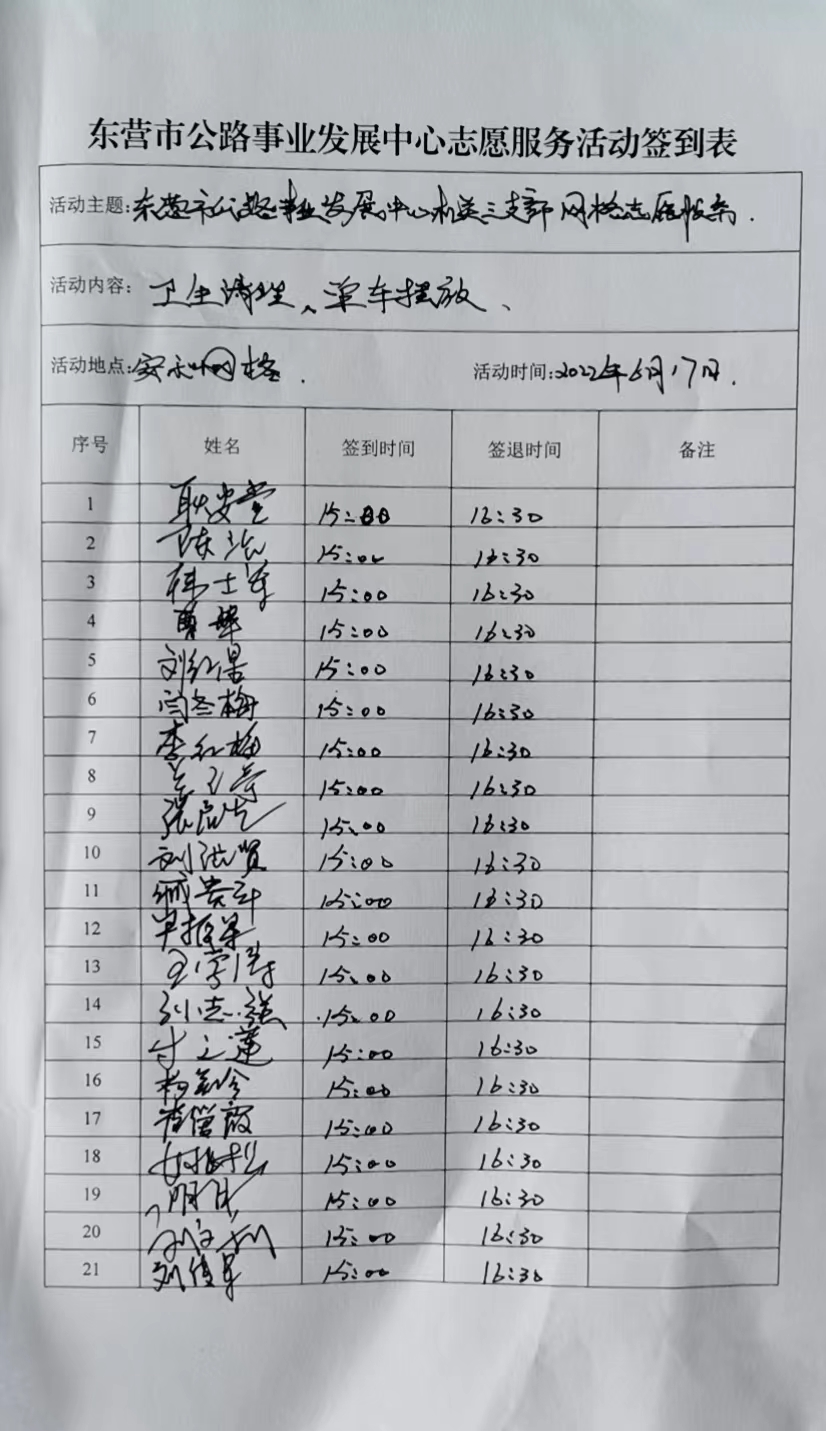 东营市公路事业发展中心志愿服务活动签到表
活动主题:东营市公路事业发展中心机关三支部网格志愿服务.
活动内容: 卫生清理、单车摆放、
活动地点:安和网格. 活动时间:2022年6月17日.
序号 姓名 签到时间 签退时间 备注
1 耿安堂 15:00 16:30
2 陈 15:00 16:30
3 士军 15:00 16:30
4 15:00 16:30
5 刘红 15:00 16:30
6 闫冬梅 15:00 16:30
7 李红梅 15:00 16:30
8 15:00 16:30
9 张 15:00 16:30
10 刘洪贤 15:00 16:30
11 15:00 16:30
12 15:00 16:30
13 王学 15:00 16:30
14 刘志强 15:00 16:30
15 付之莲 15:00 16:30
16 杨 15:00 16:30
17 霞 15:00 16:30
18 15:00 16:30
19 15:00 16:30
20 15:00 16:30
21 刘俊 15:00 16:30